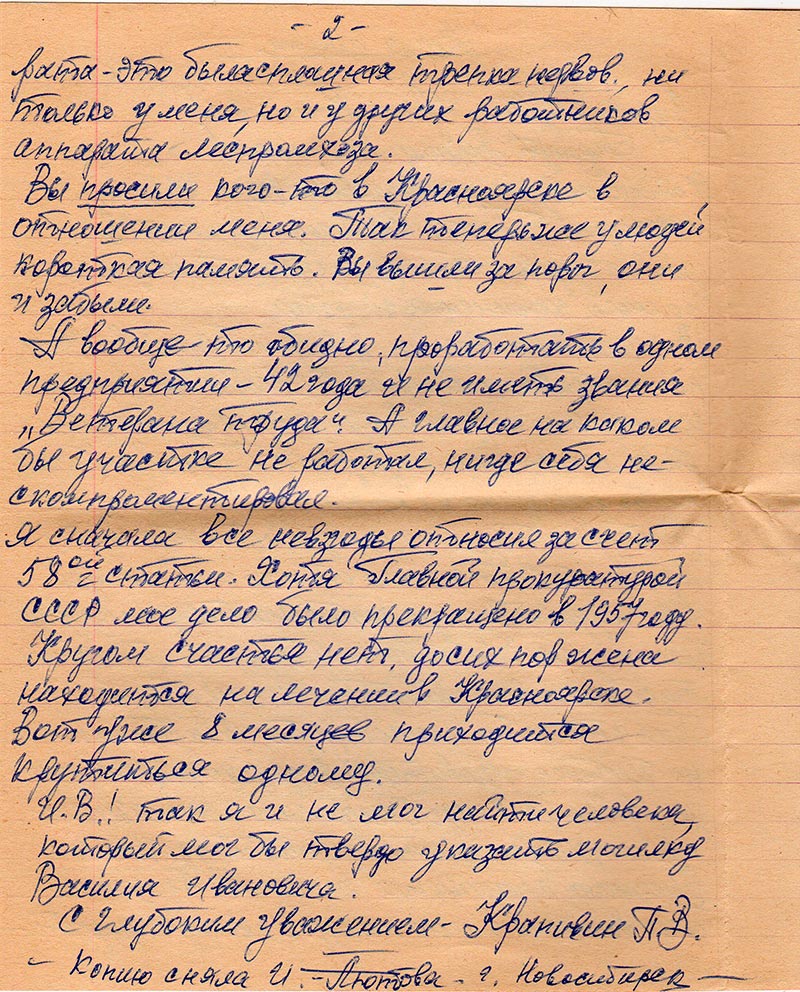 - 2 -
рата - это была сплашная трепка нервов., ни
только у меня, но и у других работников
аппарата леспромхоза.
Вы просили кого-то в Красноярске в
отношении меня. Так теперь же у людей
короткая память. Вы вышли за порог, они
и забыли.
А вообще-то обидно, проработать в одном
предприятии - 42 года и не иметь звания
„Ветерана труда". А главное на каком
бы участке не работал, нигде себя не-
скомпроментировал.
Я сначала все невзгоды относил за счет
58ой статьи. Хотя Главной прокуратурой
СССР мое дело было прекращено в 1957 году.
Кругом счастья нет, до сих пор жена
находится на лечении в Красноярске.
Вот уже 8 месяцев приходится
крутиться одному.
И.В.! так я и не мог найти человека,
который мог бы твердо указать могилку
Василия Ивановича.
С глубоким уважением - Крапивин П.В.
- Копию сняла И. - Лютова - г. Новосибирск -